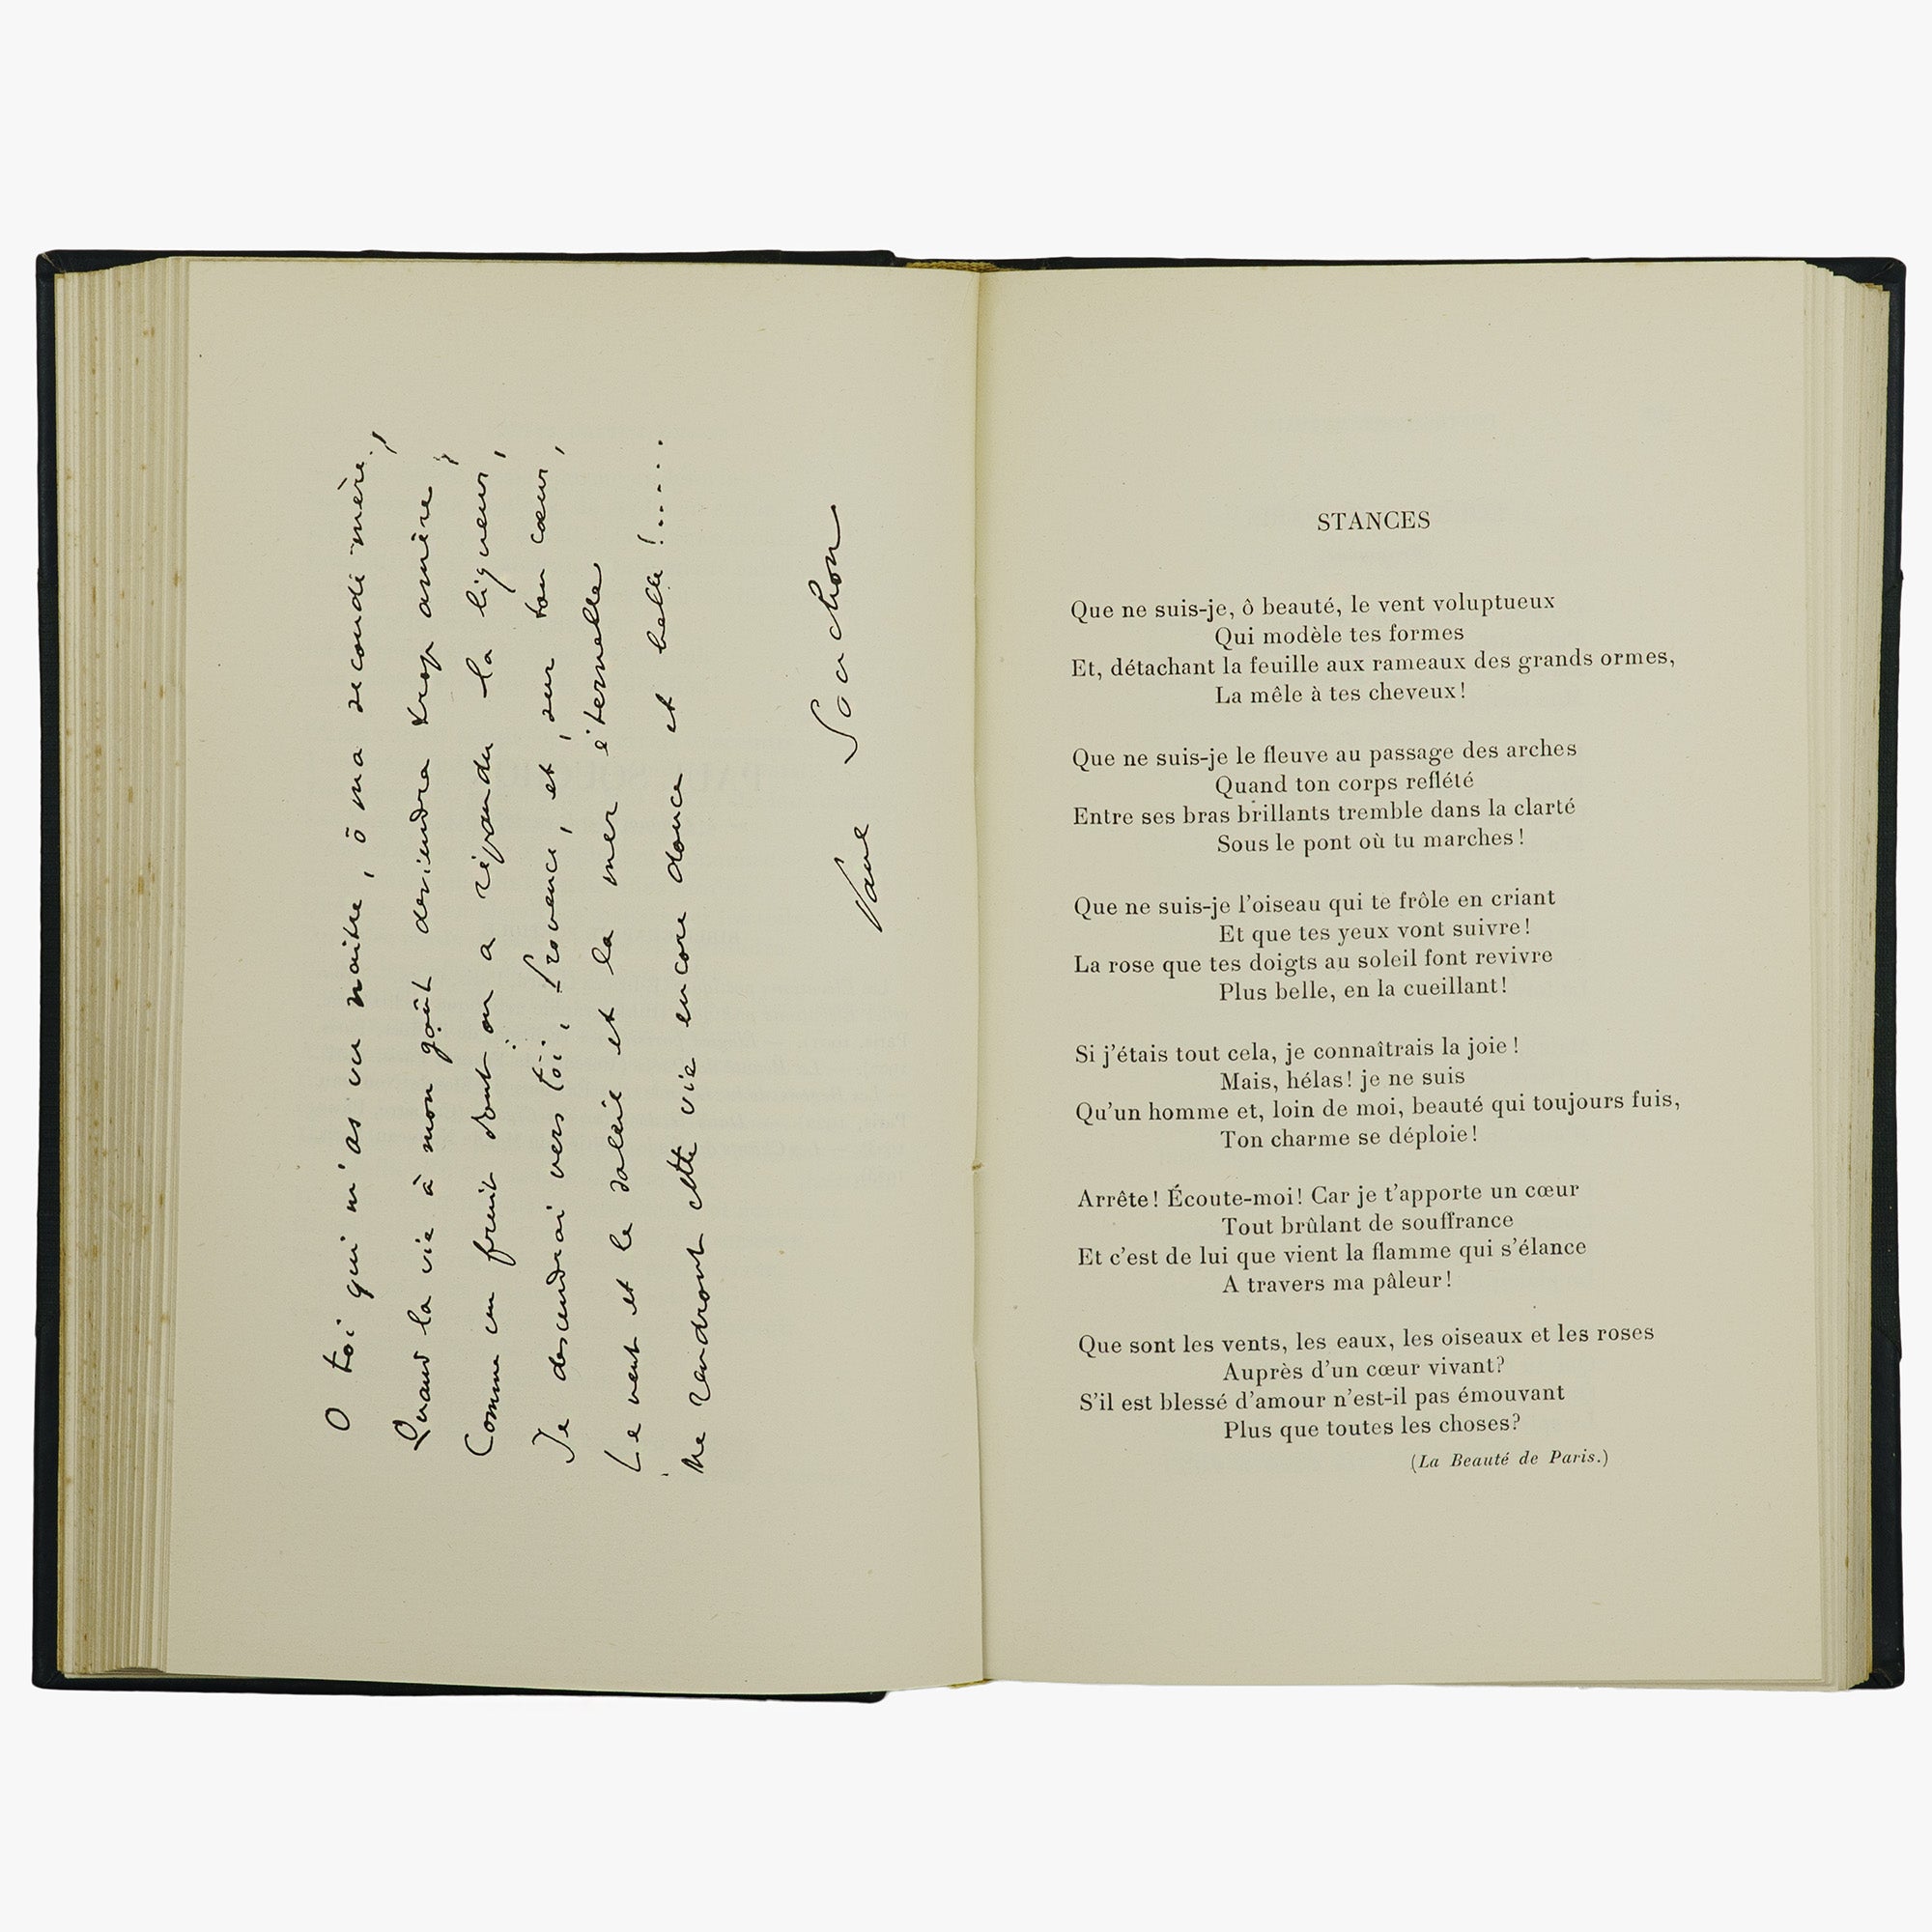 O toi qui m'as vu naître, ô ma seconde mère,
Quand la vie à mon goût deviendra trop amère,
Comme un fruit dont on a répandu la liqueur,
Je descendrai vers toi, Provence, et, sur ton cœur,
Le vent et le soleil et la mer éternelle
Me rendront cette vie encore douce et belle!.....
Paul Souchon
STANCES
Que ne suis-je, ô beauté, le vent voluptueux
Qui modèle tes formes
Et, détachant la feuille aux rameaux des grands ormes,
La mêle à tes cheveux!
Que ne suis-je le fleuve au passage des arches
Quand ton corps reflété
Entre ses bras brillants tremble dans la clarté
Sous le pont où tu marches!
Que ne suis-je l'oiseau qui te frôle en criant
Et que tes yeux vont suivre!
La rose que tes doigts au soleil font revivre
Plus belle, en la cueillant!
Si j'étais tout cela, je connaîtrais la joie!
Mais, hélas! je ne suis
Qu'un homme et, loin de moi, beauté qui toujours fuis,
Ton charme se déploie!
Arrête! Écoute-moi! Car je t'apporte un cœur
Tout brûlant de souffrance
Et c'est de lui que vient la flamme qui s'élance
A travers ma pâleur!
Que sont les vents, les eaux, les oiseaux et les roses
Auprès d'un cœur vivant?
S'il est blessé d'amour n'est-il pas émouvant
Plus que toutes les choses?
(La Beauté de Paris.)